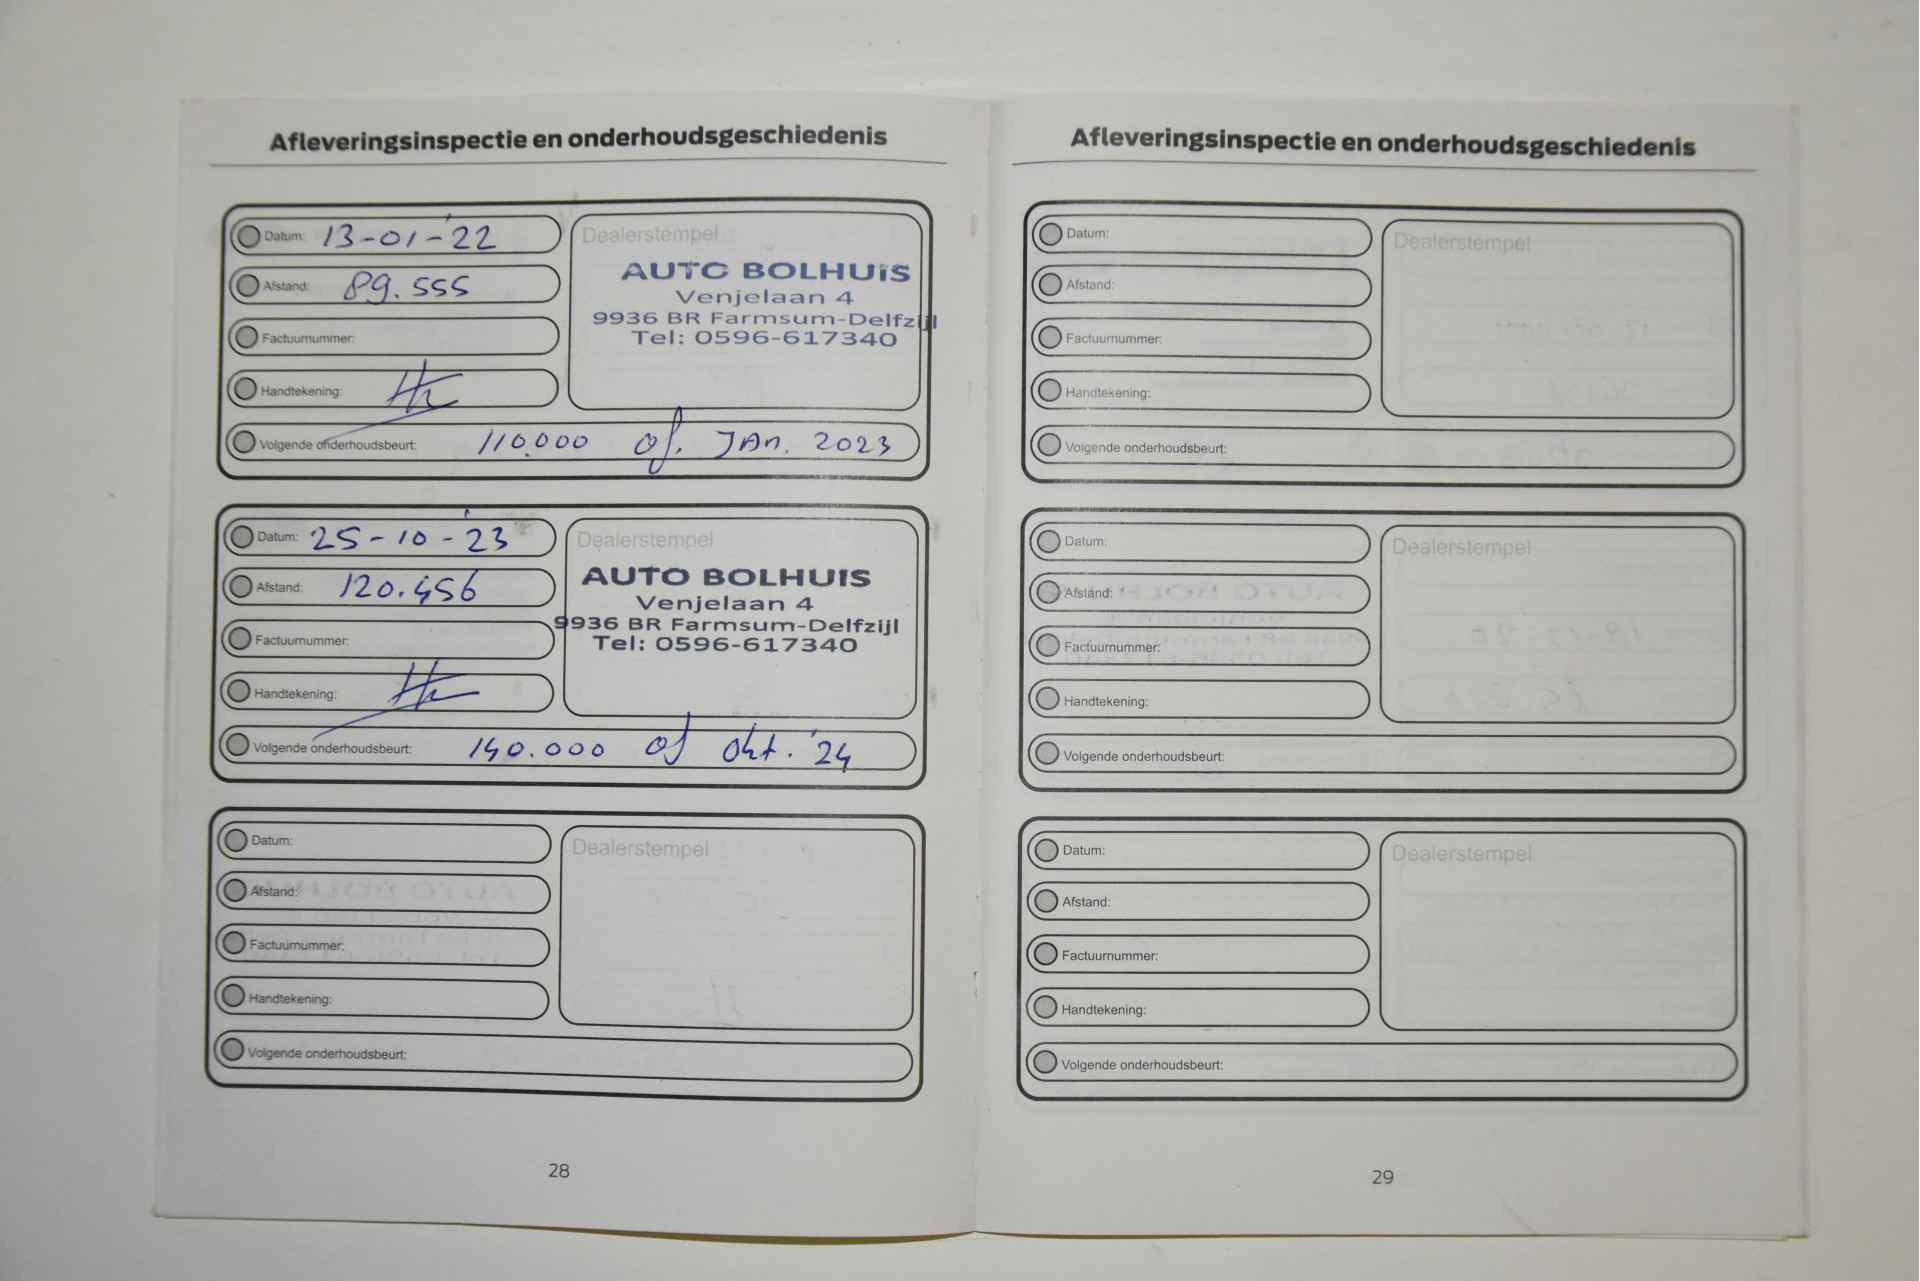 Afleveringsinspectie en onderhoudsgeschiedenis
Datum: 13-01-'22
Afstand: 89.555
Factuurnummer:
Handtekening:
Dealerstempel
AUTO BOLHUIS
Venjelaan 4
9936 BR Farmsum-Delfzijl
Tel: 0596-617340
Volgende onderhoudsbeurt: 110.000 of. JAn. 2023
Datum: 25-10-'23
Afstand: 120.456
Factuurnummer:
Handtekening:
Dealerstempel
AUTO BOLHUIS
Venjelaan 4
9936 BR Farmsum-Delfzijl
Tel: 0596-617340
Volgende onderhoudsbeurt: 140.000 of okt. '24
Datum:
Afstand:
Factuurnummer:
Handtekening:
Dealerstempel
Volgende onderhoudsbeurt:
28
Afleveringsinspectie en onderhoudsgeschiedenis
Datum:
Afstand:
Factuurnummer:
Handtekening:
Dealerstempel
Volgende onderhoudsbeurt:
Datum:
Afstand:
Factuurnummer:
Handtekening:
Dealerstempel
Volgende onderhoudsbeurt:
Datum:
Afstand:
Factuurnummer:
Handtekening:
Dealerstempel
Volgende onderhoudsbeurt:
29